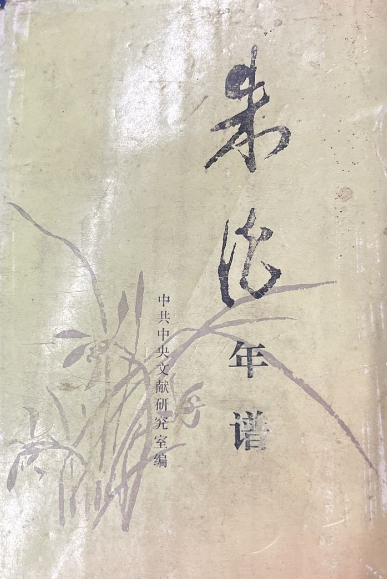 朱德年谱
中共中央文献研究室编